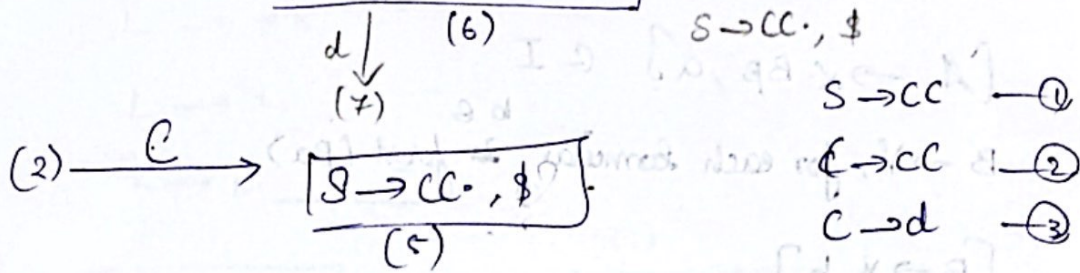 d (6) S→CC·, $
(7) S→CC —①
(2) C S→CC·, $ C→cC —②
(5) C→d —③